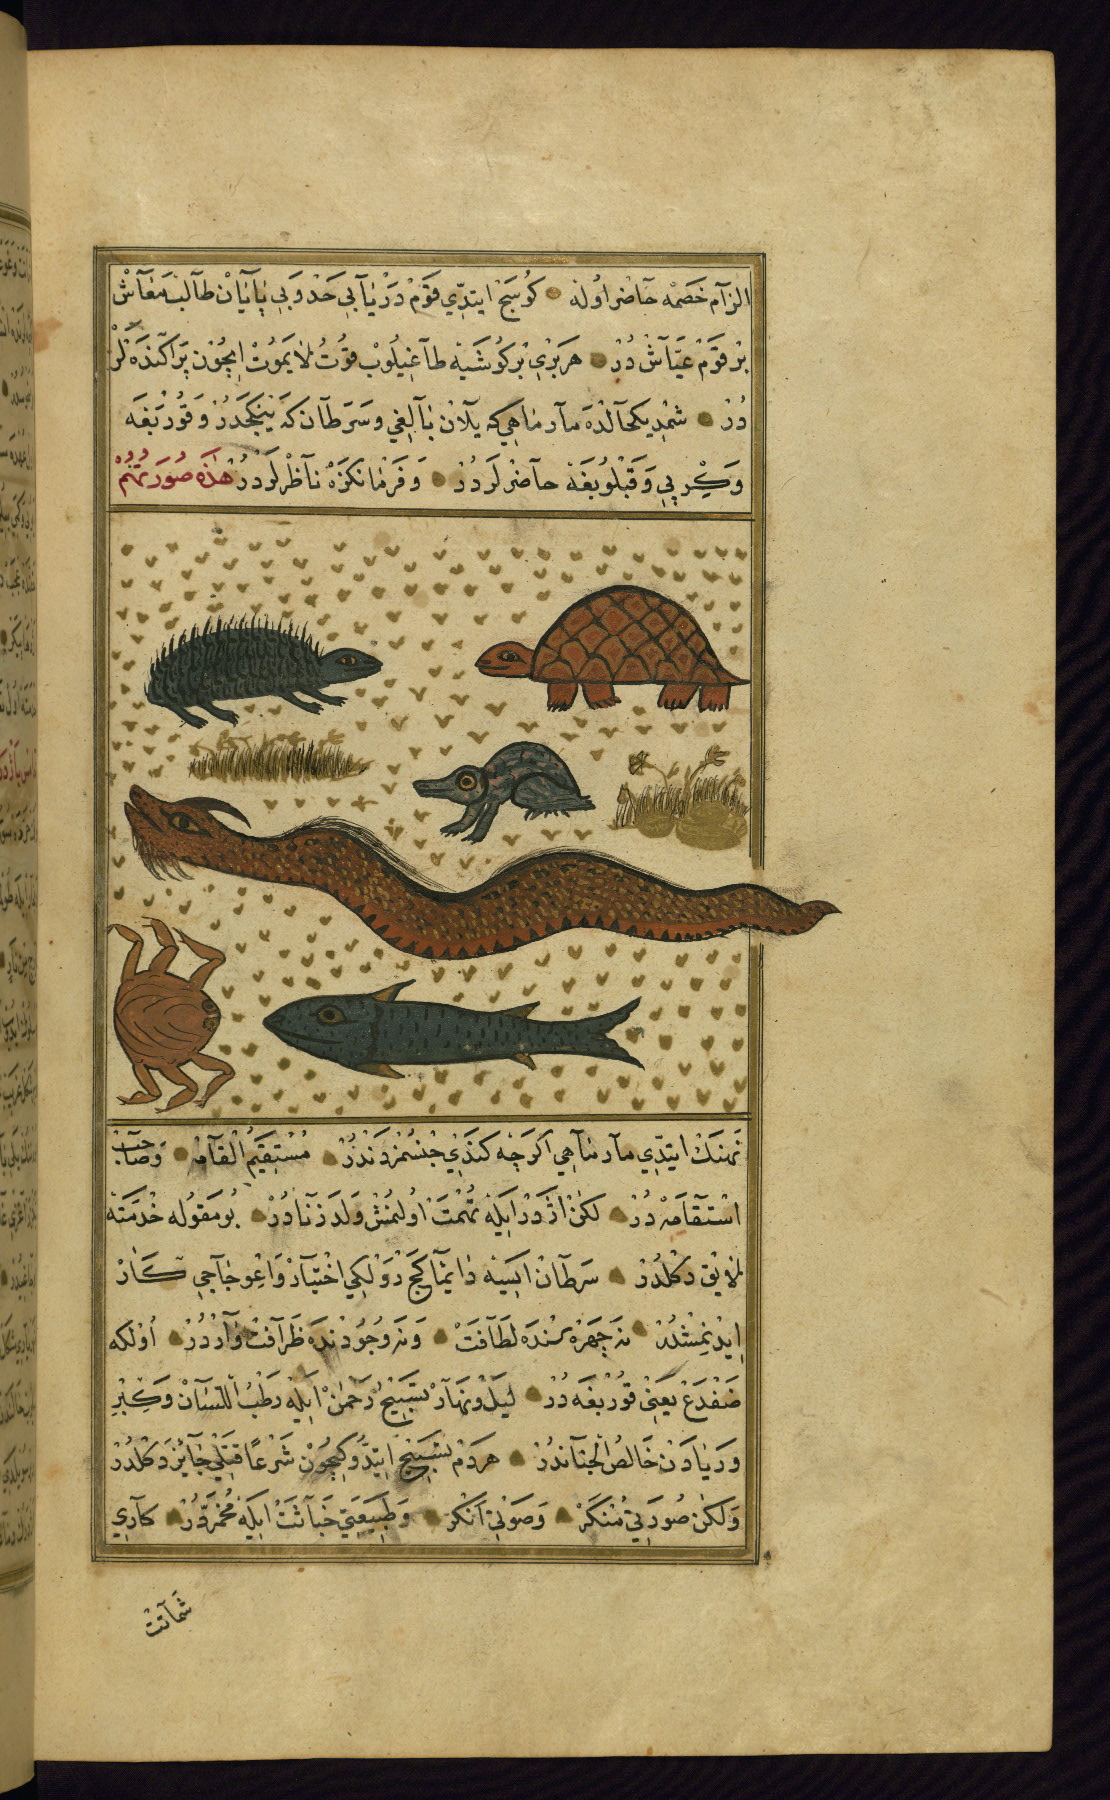 الزآم خصمه حآضر اوله كوسج ايتدي قوم درياىي حد و بى پايان طالب معآش
بر قوم عيآش در هر برى بر كوشيه طاغيلوب قوت لا يموت ايچون پراكنده لر
در شمديكحالده مار ماهى كه يلان بالغى و سرطان كه ينكجدر و قوربغه
و كيرپى و قپلوبغه حاضر لردر و فرمانكزه ناظر لردر هذه صورتهم
نهنك ايتدى مار ماهى اكرچه كندى جنسمزدندر مستقيم القامه و صاحب
استقامه در لكن اژدر ايله تهمت اولنمش ولد زنا در بو مقوله خدمته
لايق دكلدر سرطان ايسه دايما كجرولكى اختيار و اعوجاجى كار
ايدنمشدر نه چهره سنده لطافت و نه وجودنده ظرافت وآردر اولكه
ضفدع يعنى قوربغه در ليل و نهار تسبيح رحمن ايله رطب اللسان و كبر
و ريادن خالص الجناندر هردم تسبيح ايتدوكيچون شرعا قتلى جايز دكلدر
ولكن صورتى منكر و صوتى انكر و طبيعتى خباثت ايله مخمردر كارى
شماتت